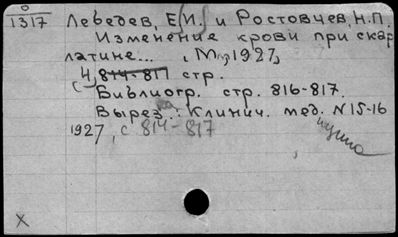 О
1317
Лебедев, Е.И. и Ростовцев, Н.П.
Изменение крови при скар
латине... , М., 1927,
4, 814-817 стр.
Библиогр. стр. 816-817.
Вырез. : Клинич. мед. N 15-16
1927, с 814-817
х